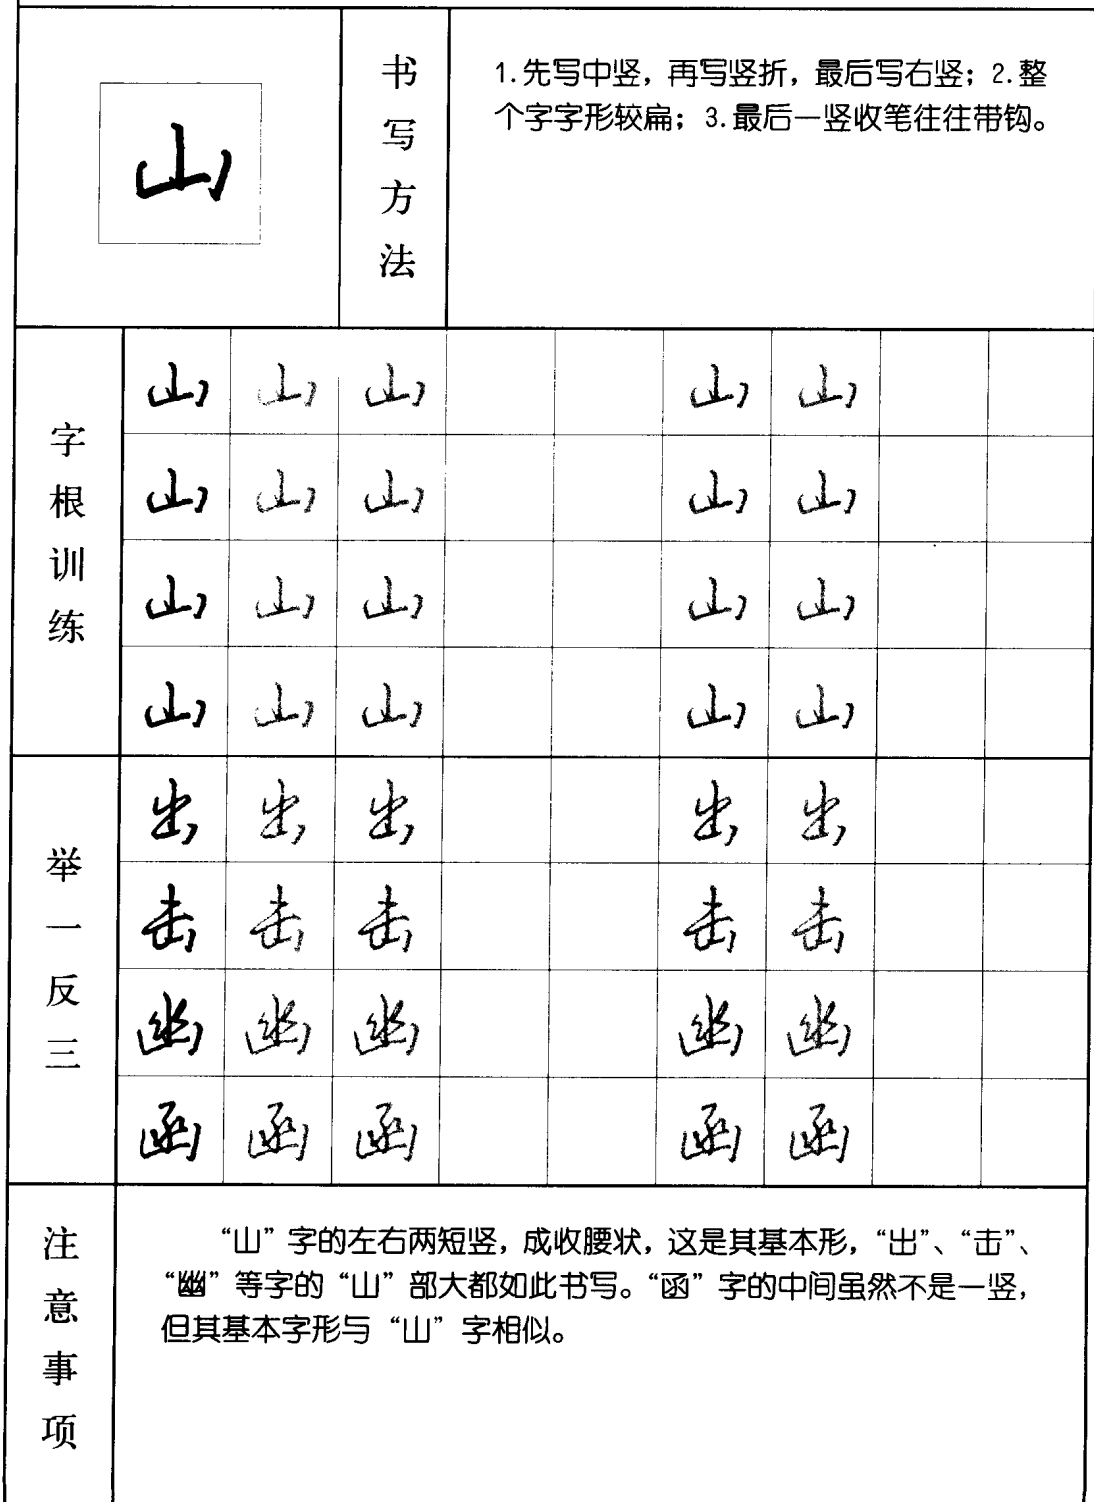 山
书写方法
1.先写中竖，再写竖折，最后写右竖；2.整
个字字形较扁；3.最后一竖收笔往往带钩。
字根训练
山 山 山 山 山
山 山 山 山 山
山 山 山 山 山
山 山 山 山 山
举一反三
出 出 出 出 出
击 击 击 击 击
幽 幽 幽 幽 幽
函 函 函 函 函
注意事项
“山”字的左右两短竖，成收腰状，这是其基本形，“出”、“击”、
“幽”等字的“山”部大都如此书写。“函”字的中间虽然不是一竖，
但其基本字形与“山”字相似。